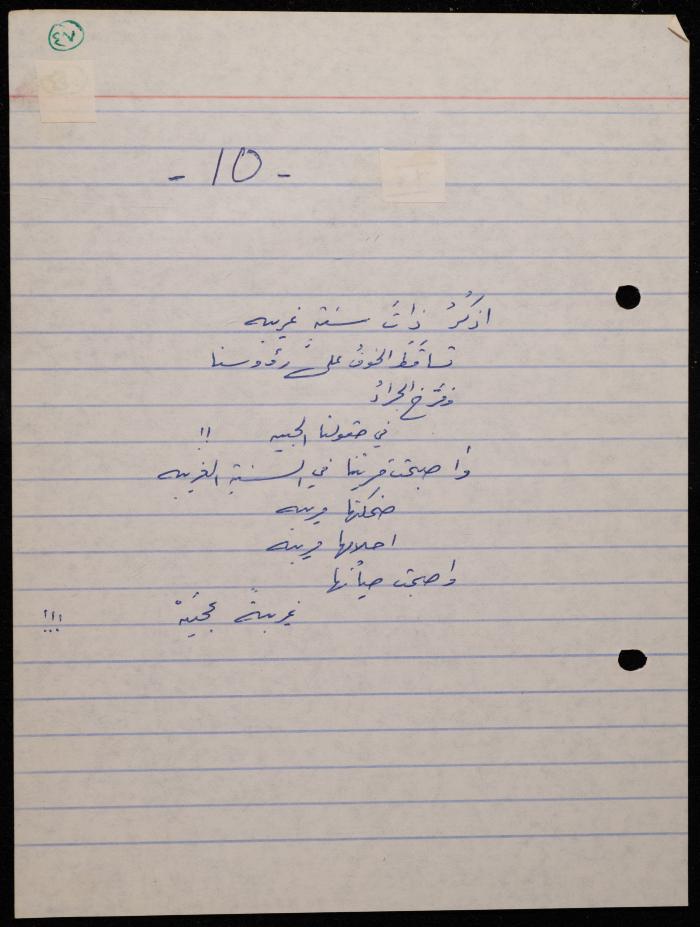 ٨٣
- ١٥ -
اذكُرُ ذاتَ سنةٍ غريبه
تساقطَ الخوفُ على رؤوسنا
وفرَّخ الجرادُ
في حقولنا الحبيبه !!
وأصبحت قريتنا في السنةِ الغريبه
ضحكتها مريبه
احلامها مريبه
واصبحت حياتُها
غريبةً عجيبَهْ !!!